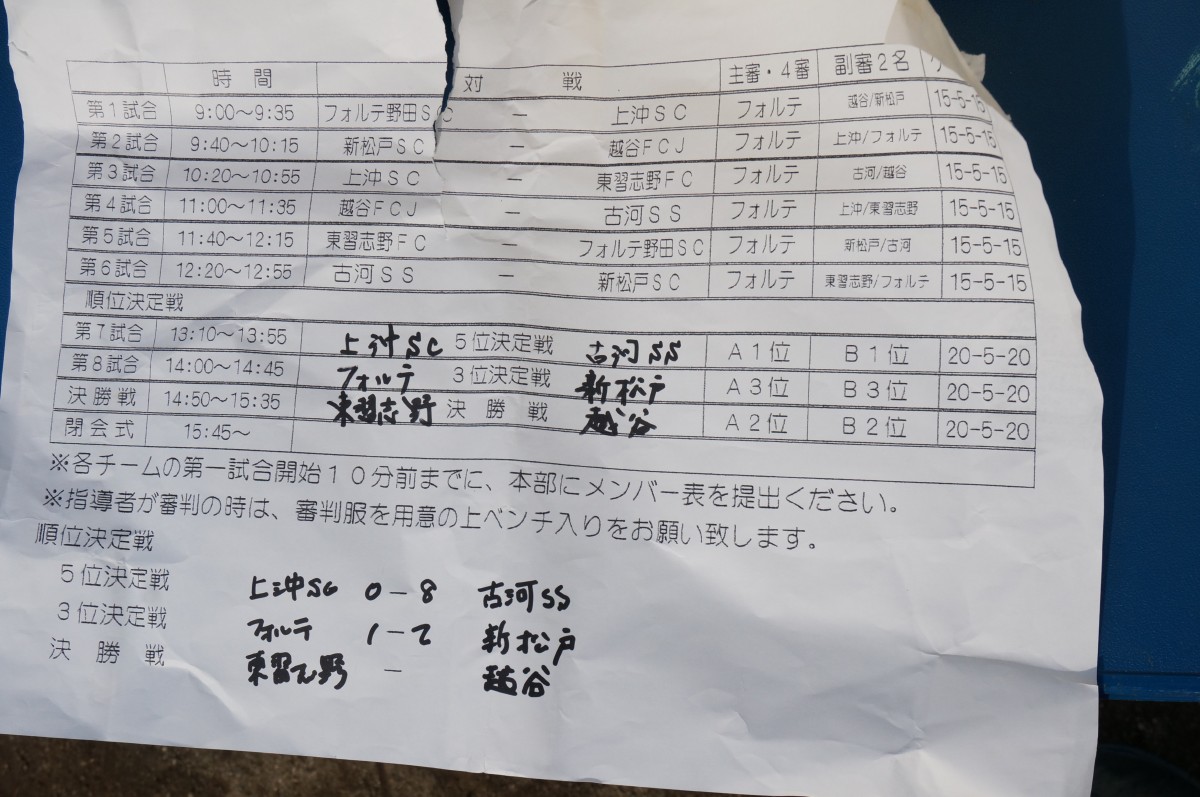 時間 対戦 主審・4審 副審2名
第1試合 9:00～9:35 フォルテ野田SC － 上沖SC フォルテ 越谷/新松戸 15-5-15
第2試合 9:40～10:15 新松戸SC － 越谷FCJ フォルテ 上沖/フォルテ 15-5-15
第3試合 10:20～10:55 上沖SC － 東習志野FC フォルテ 古河/越谷 15-5-15
第4試合 11:00～11:35 越谷FCJ － 古河SS フォルテ 上沖/東習志野 15-5-15
第5試合 11:40～12:15 東習志野FC － フォルテ野田SC フォルテ 新松戸/古河 15-5-15
第6試合 12:20～12:55 古河SS － 新松戸SC フォルテ 東習志野/フォルテ 15-5-15
順位決定戦
第7試合 13:10～13:55 上沖SC 5位決定戦 古河SS A1位 B1位 20-5-20
第8試合 14:00～14:45 フォルテ 3位決定戦 新松戸 A3位 B3位 20-5-20
決勝戦 14:50～15:35 東習志野 決勝戦 越谷 A2位 B2位 20-5-20
閉会式 15:45～
※各チームの第一試合開始10分前までに、本部にメンバー表を提出ください。
※指導者が審判の時は、審判服を用意の上ベンチ入りをお願い致します。
順位決定戦
5位決定戦 上沖SC 0－8 古河SS
3位決定戦 フォルテ 1－2 新松戸
決勝戦 東習志野 － 越谷